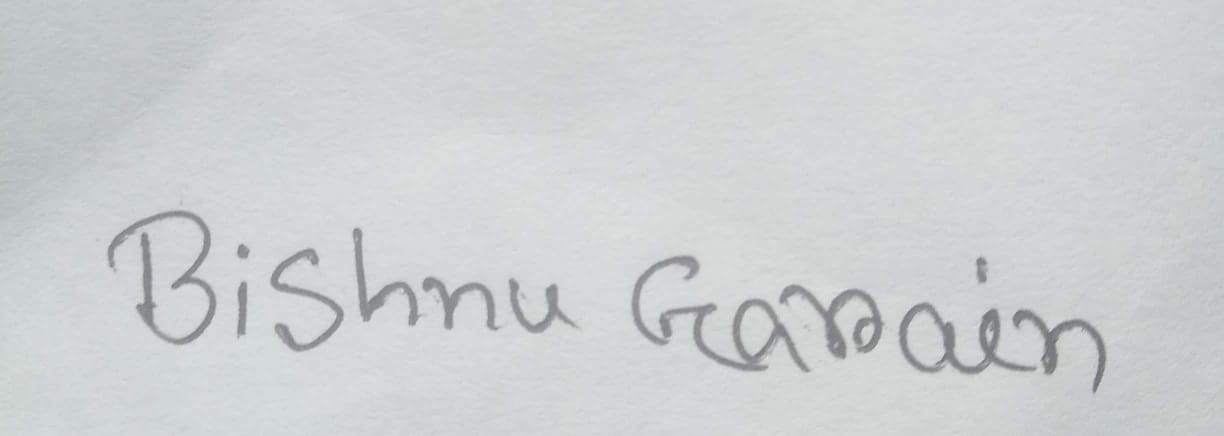 Bishnu Garain